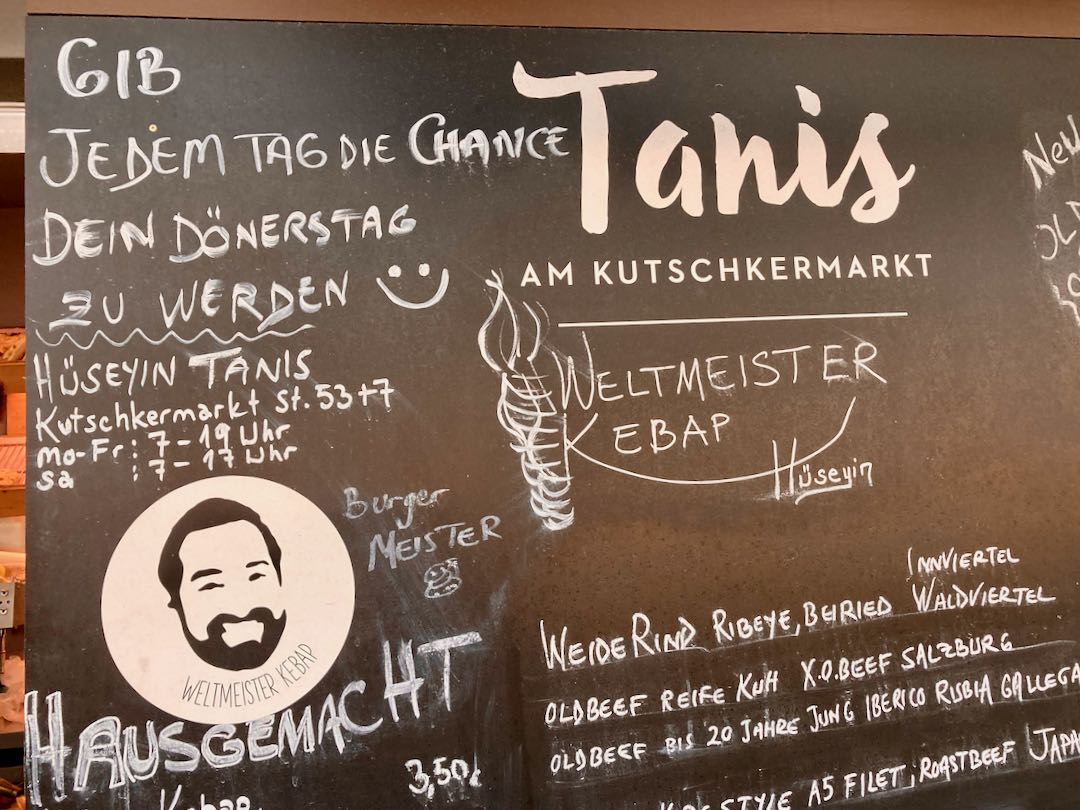 GIB
JEDEM TAG DIE CHANCE
DEIN DÖNERSTAG
ZU WERDEN
HÜSEYIN TANIS
Kutschkermarkt St. 53+7
Mo-Fr: 7-19 Uhr
Sa : 7-17 Uhr
Burger
MEISTER
WELTMEISTER KEBAP
HAUSGEMACHT
3,50
Kebap
Tanis
AM KUTSCHKERMARKT
WELTMEISTER
KEBAP
Hüseyin
INNVIERTEL
WEIDERIND RIBEYE, BEIRIED WALDVIERTEL
OLDBEEF REIFE KUH X.O.BEEF SALZBURG
OLDBEEF BIS 20 JAHRE JUNG IBERICO RISBIA GALLEGA
STYLE A5 FILET, ROASTBEEF JAPA
New
OLD